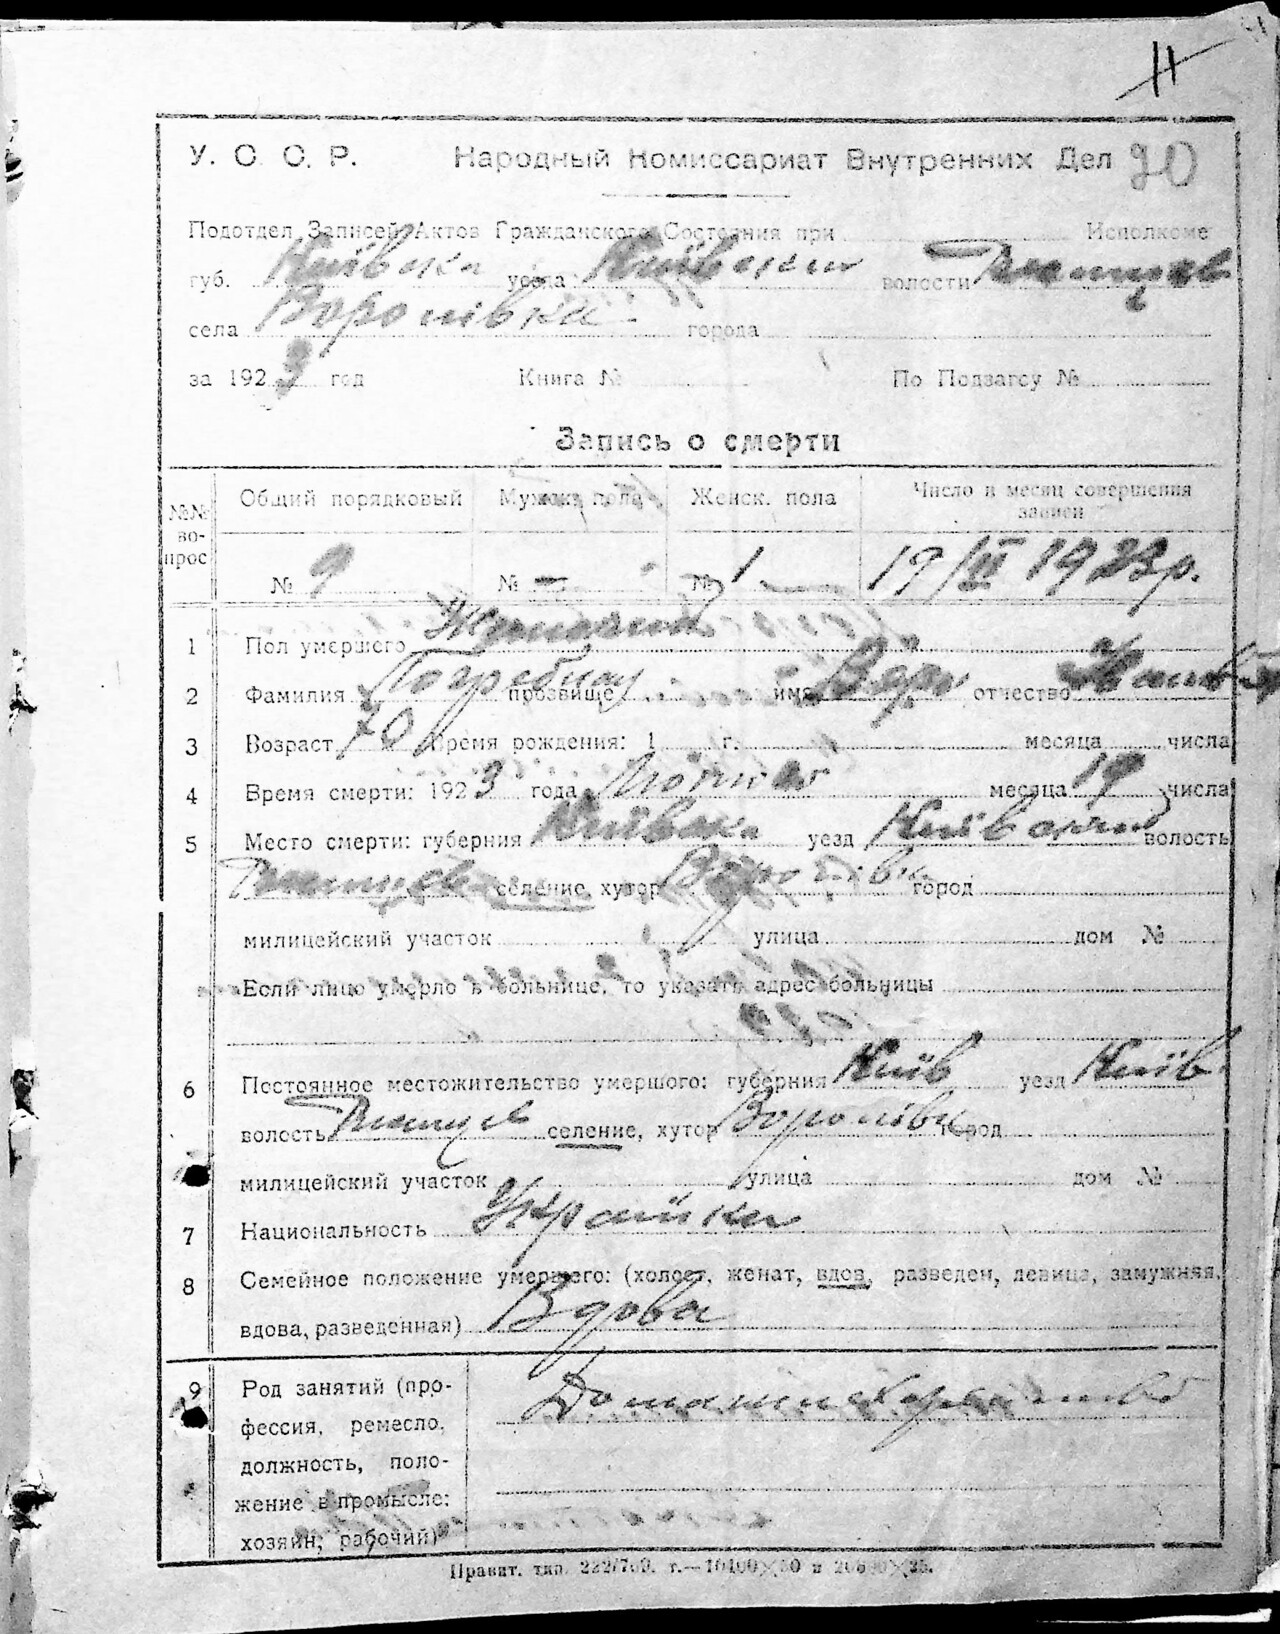 11
У. С. С. Р. Народный Комиссариат Внутренних Дел 20
Подотдел Записей Актов Гражданского Состояния при Исполкоме
губ. Київська уезда Київський волости
села Воропівка города
за 1923 год Книга № По Подзагсу №
Запись о смерти
№№ во- прос Общий порядковый Мужск. пола Женск. пола Число и месяц совершения записи
№ 9 № — № 1 19/II 1923 р.
1 Пол умершего
2 Фамилия Погребная прозвище имя отчество
3 Возраст 70 Время рождения: 1 г. месяца числа
4 Время смерти: 1923 года Лютого месяца 19 числа
5 Место смерти: губерния Київська уезд Київський волость
селение, хутор Воропівка город
милицейский участок улица дом №
Если лицо умерло в больнице, то указать адрес больницы
6 Постоянное местожительство умершого: губерния Київ уезд Київ
волость селение, хутор Воропівка город
милицейский участок улица дом №
7 Национальность Українка
8 Семейное положение умершего: (холост, женат, вдов, разведен, девица, замужняя,
вдова, разведенная) Вдова
9 Род занятий (про- Домашнє
фессия, ремесло,
должность, поло-
жение в промысле:
хозяин, рабочий)
Правит. тип.